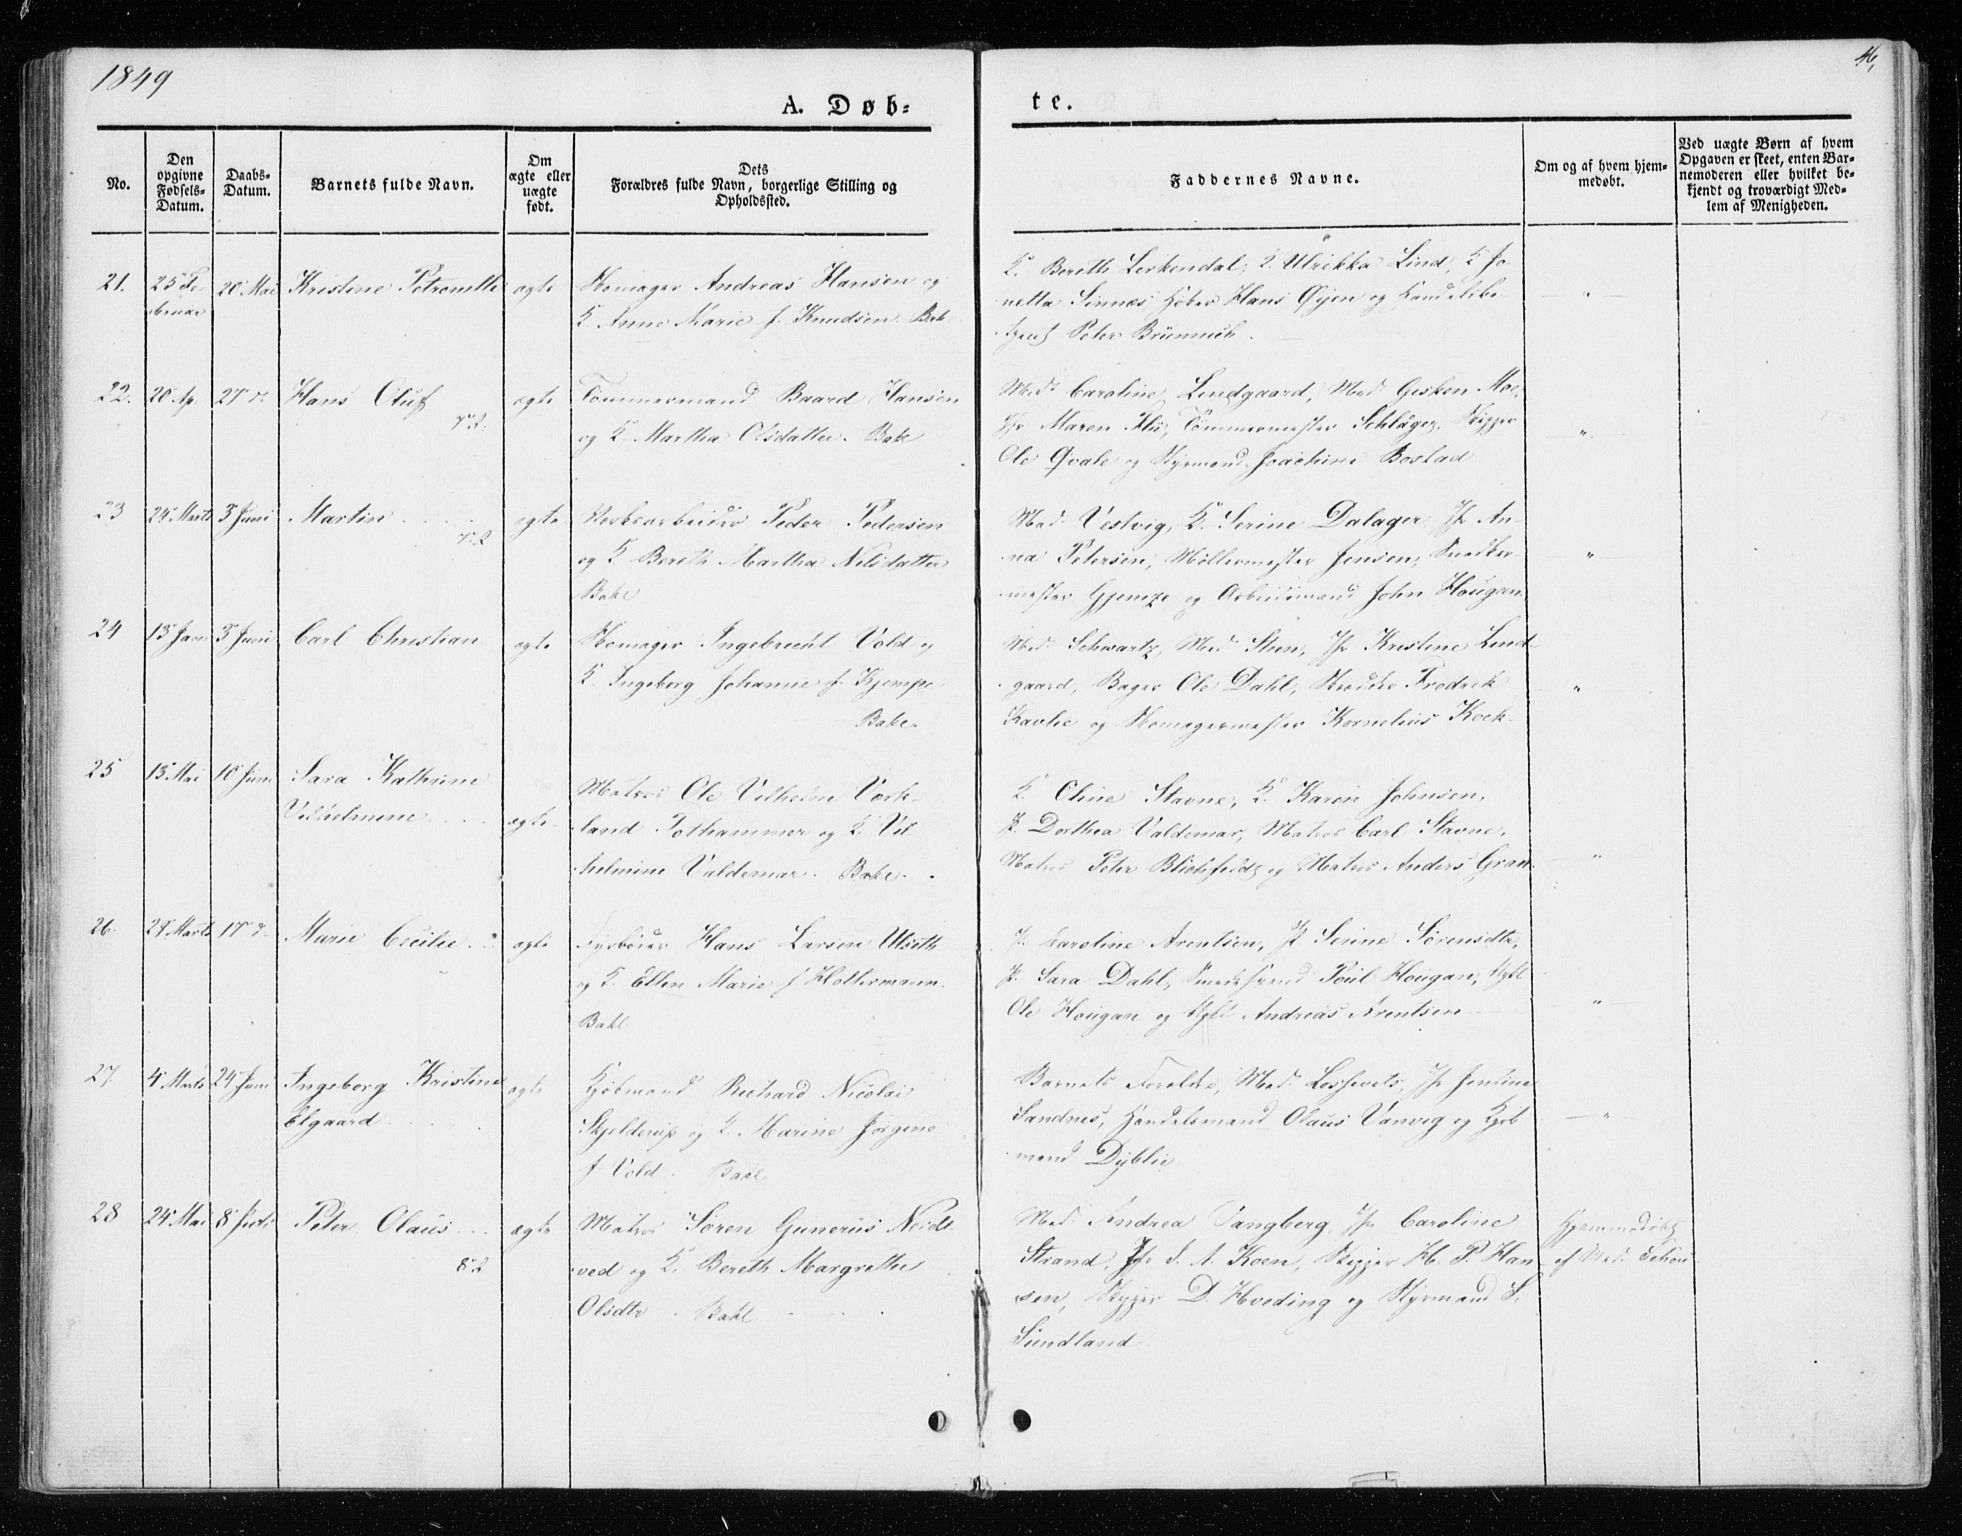 1849
46,
A. Døb-
te.
No.
Den
opgivne
Fødsels-
Datum.
Daabs-
Datum.
Barnets fulde Navn.
Om
ægte eller
uægte
født.
Dets
Forældres fulde Navn, borgerlige Stilling og
Opholdssted.
Faddernes Navne.
Om og af hvem hjem-
medøbt.
Ved uægte Børn af hvem
Opgaven er skeet, enten Bar-
nemoderen eller hvilket be-
kjendt og troværdigt Med-
lem af Menigheden.
21. 25 Fe-
bruar
20 Mai
Kristine Petronelle
ægte
Skomager Andreas Hansen og
K. Anne Marie f. Knudsen. Bak.
K. Bereth Lerkendal, K. Ulrikka Lind, K Jo-
netta Sinnes Gjøber Hans Øyen og Handelsbe-
tjent Peter Brünnich.
"
22. 20 Ap. 27 d.
Hans Oluf
ægte
Tömmermand Baard Hansen
og K. Martha Olsdatter. Bake
Mad. Caroline Lendgaard, Mad. Gesken Moe,
Jfr Maren Flü, Tömmermester Schläger, Skipper
Ole Qvale og Styrmand Joachim Bostad
"
23 24 Marts 3 Juni
Martin
ægte
Værksarbeider Peder Pedersen
og K Bereth Martha Nilsdatter
Bakl
Mad. Vestvig, K. Serine Dalager, Jfr An-
na Petersen, Möllermester Jensen, Snedker-
mester Gjemze og Arbeidsmand John Hougan,
"
24 13 Jan. 3 Juni
Carl Christian
ægte
Skomager Ingebrecht Vold og
K. Ingeborg Johanne f. Kjempe
Bake.
Mad. Schwartz, Mad Steen, Jfr Kristine Lind-
gaard, Bager Ole Dahl, Skrædder Fredrek
Kavlie og Skomagermester Kornelius Koch-
"
25 13 Mai 10 Juni
Sara Kathrine
Vilhelmine
ægte.
Matros Ole Vilhelm Værk-
land Pothammer og K. Vil
helmine Valdemar. Bake.
K. Oline Stavne, K. Karin Johnsen,
P. Dorthea Valdemar, Matros Carl Stavne,
Matros Peter Blichfeldt og Matros Anders Gran-
"
26. 29 Marts 17 d.
Marie Cecilie
ægte
Fyrböder Hans Larsen Ulseth
og K. Ellen Marie f Holtermann.
Bakl
P. Caroline Arentsen, P. Serine Sørensdtr,
P. Sara Dahl, Smedesvend Poul Hougan, Ugkl
Ole Hougan og Ugkl Andreas Arentsen
"
27 4 Marts 24 Juni
Ingeborg Kristine
Elgaard
ægte
Kjöbmand Richard Nicolai
Skjelderup og K. Marine Jørgine
f. Vold. Bakl
Barnets Forældre, Mad. Lossevits, Jfr Jentine
Sandnes, Handelsmand Olaus Vanvig og Kjøb
mand Dyblie
"
28 24 Mai 8 Juli
Peter Olaus
ægte
Matros Sören Gunerius Neidt
ved og K. Bereth Margrethe
Olsdtr. Bakl
Mad. Andrea Tangberg, Jfr Caroline
Strand, Jfr S. A. Koen, Skipper H. P. Han-
sen, Skipper D. Hveding og Styrmand S.
Sundland.
Hjemmedøbt
af Mad. Schou